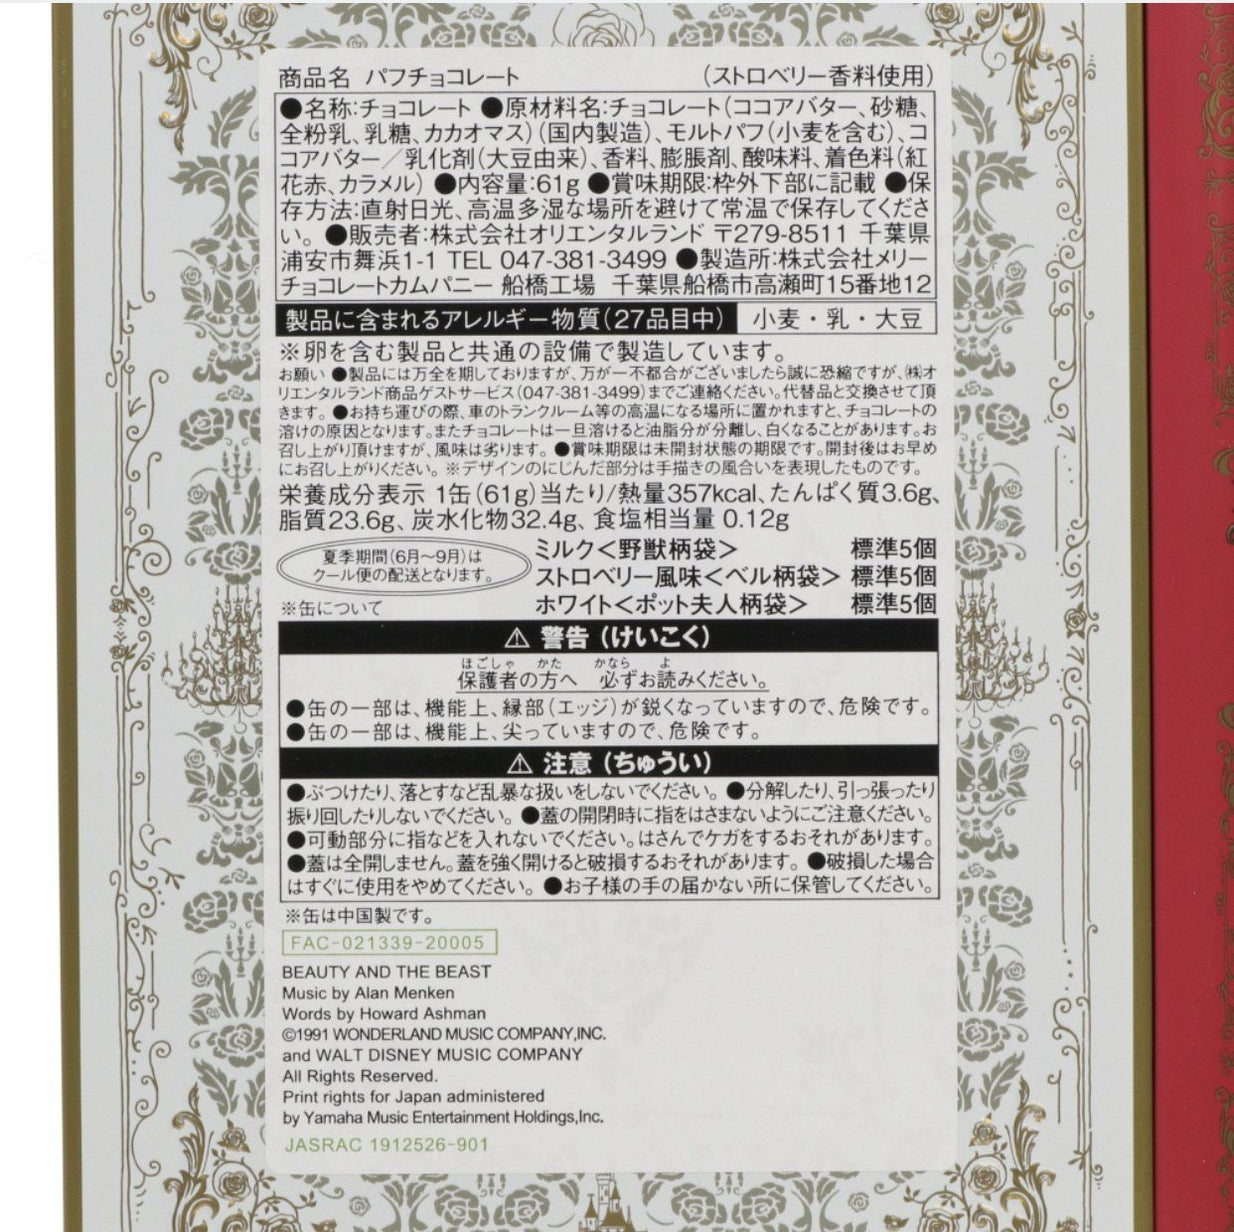 商品名 パフチョコレート （ストロベリー香料使用）
●名称:チョコレート ●原材料名:チョコレート（ココアバター、砂糖、
全粉乳、乳糖、カカオマス）（国内製造）、モルトパフ（小麦を含む）、コ
コアバター／乳化剤（大豆由来）、香料、膨脹剤、酸味料、着色料（紅
花赤、カラメル） ●内容量:61g ●賞味期限:枠外下部に記載 ●保
存方法:直射日光、高温多湿な場所を避けて常温で保存してくださ
い。 ●販売者:株式会社オリエンタルランド 〒279-8511 千葉県
浦安市舞浜1-1 TEL 047-381-3499 ●製造所:株式会社メリー
チョコレートカムパニー 船橋工場 千葉県船橋市高瀬町15番地12
製品に含まれるアレルギー物質（27品目中） 小麦・乳・大豆
※卵を含む製品と共通の設備で製造しています。
お願い ●製品には万全を期しておりますが、万が一不都合がございましたら誠に恐縮ですが、㈱オ
リエンタルランド商品ゲストサービス（047-381-3499）までご連絡ください。代替品と交換させて頂
きます。 ●お持ち運びの際、車のトランクルーム等の高温になる場所に置かれますと、チョコレートの
溶けの原因となります。またチョコレートは一旦溶けると油脂分が分離し、白くなることがあります。お
召し上がり頂けますが、風味は劣ります。 ●賞味期限は未開封状態の期限です。開封後はお早め
にお召し上がりください。 ※デザインのにじんだ部分は手描きの風合いを表現したものです。
栄養成分表示 1缶（61g）当たり/熱量357kcal、たんぱく質3.6g、
脂質23.6g、炭水化物32.4g、食塩相当量 0.12g
夏季期間（6月〜9月）は
クール便の配送となります。
ミルク＜野獣柄袋＞ 標準5個
ストロベリー風味＜ベル柄袋＞ 標準5個
ホワイト＜ポット夫人柄袋＞ 標準5個
※缶について
⚠ 警告（けいこく）
ほごしゃ かた かなら よ
保護者の方へ 必ずお読みください。
●缶の一部は、機能上、縁部（エッジ）が鋭くなっていますので、危険です。
●缶の一部は、機能上、尖っていますので、危険です。
⚠ 注意（ちゅうい）
●ぶつけたり、落とすなど乱暴な扱いをしないでください。 ●分解したり、引っ張ったり
振り回したりしないでください。 ●蓋の開閉時に指をはさまないようにご注意ください。
●可動部分に指などを入れないでください。はさんでケガをするおそれがあります。
●蓋は全開しません。蓋を強く開けると破損するおそれがあります。 ●破損した場合
はすぐに使用をやめてください。 ●お子様の手の届かない所に保管してください。
※缶は中国製です。
FAC-021339-20005
BEAUTY AND THE BEAST
Music by Alan Menken
Words by Howard Ashman
©1991 WONDERLAND MUSIC COMPANY,INC.
and WALT DISNEY MUSIC COMPANY
All Rights Reserved.
Print rights for Japan administered
by Yamaha Music Entertainment Holdings,Inc.
JASRAC 1912526-901